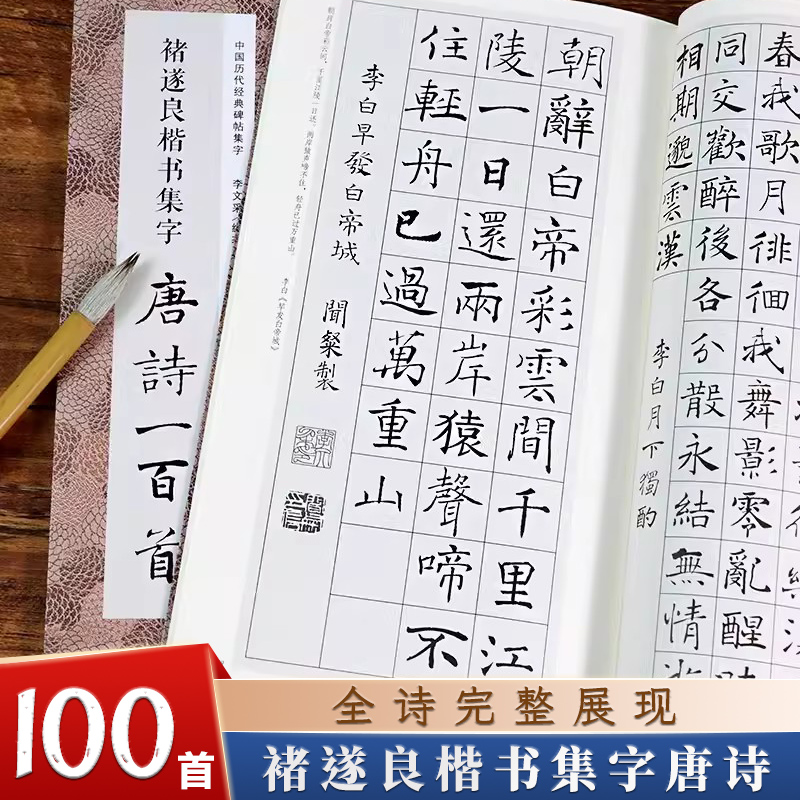 中国历代经典碑帖集字 李文采·编
褚遂良楷书集字
唐詩一百首
朝辭白帝彩雲間千里江
陵一日還兩岸猿聲啼不
住輕舟已過萬重山
李白早發白帝城 聞粲製
朝辞白帝彩云间，千里江陵一日还。两岸猿声啼不住，轻舟已过万重山。
李白《早发白帝城》
春我歌月徘徊我舞影零亂醒時
同交歡醉後各分散永結無情遊
相期邈雲漢
李白月下獨酌
100首
全诗完整展现
褚遂良楷书集字唐诗